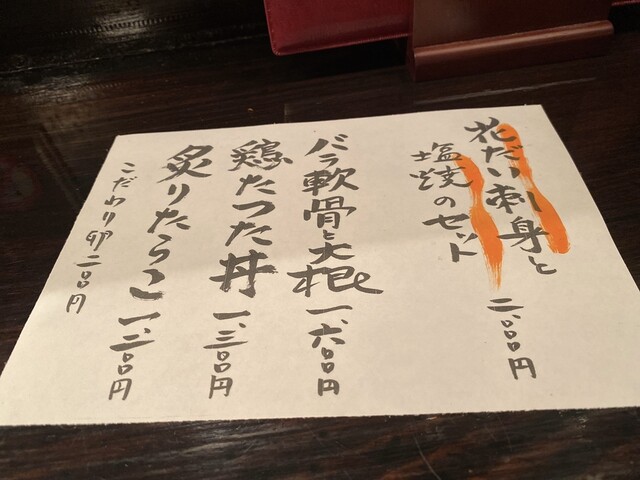 花だい刺身と
塩焼のセット 二、〇〇〇円
バラ軟骨と大根 一、六〇〇円
鶏たつた丼 一、三〇〇円
炙りたらこ 一、二〇〇円
こだわり卵 二〇〇円